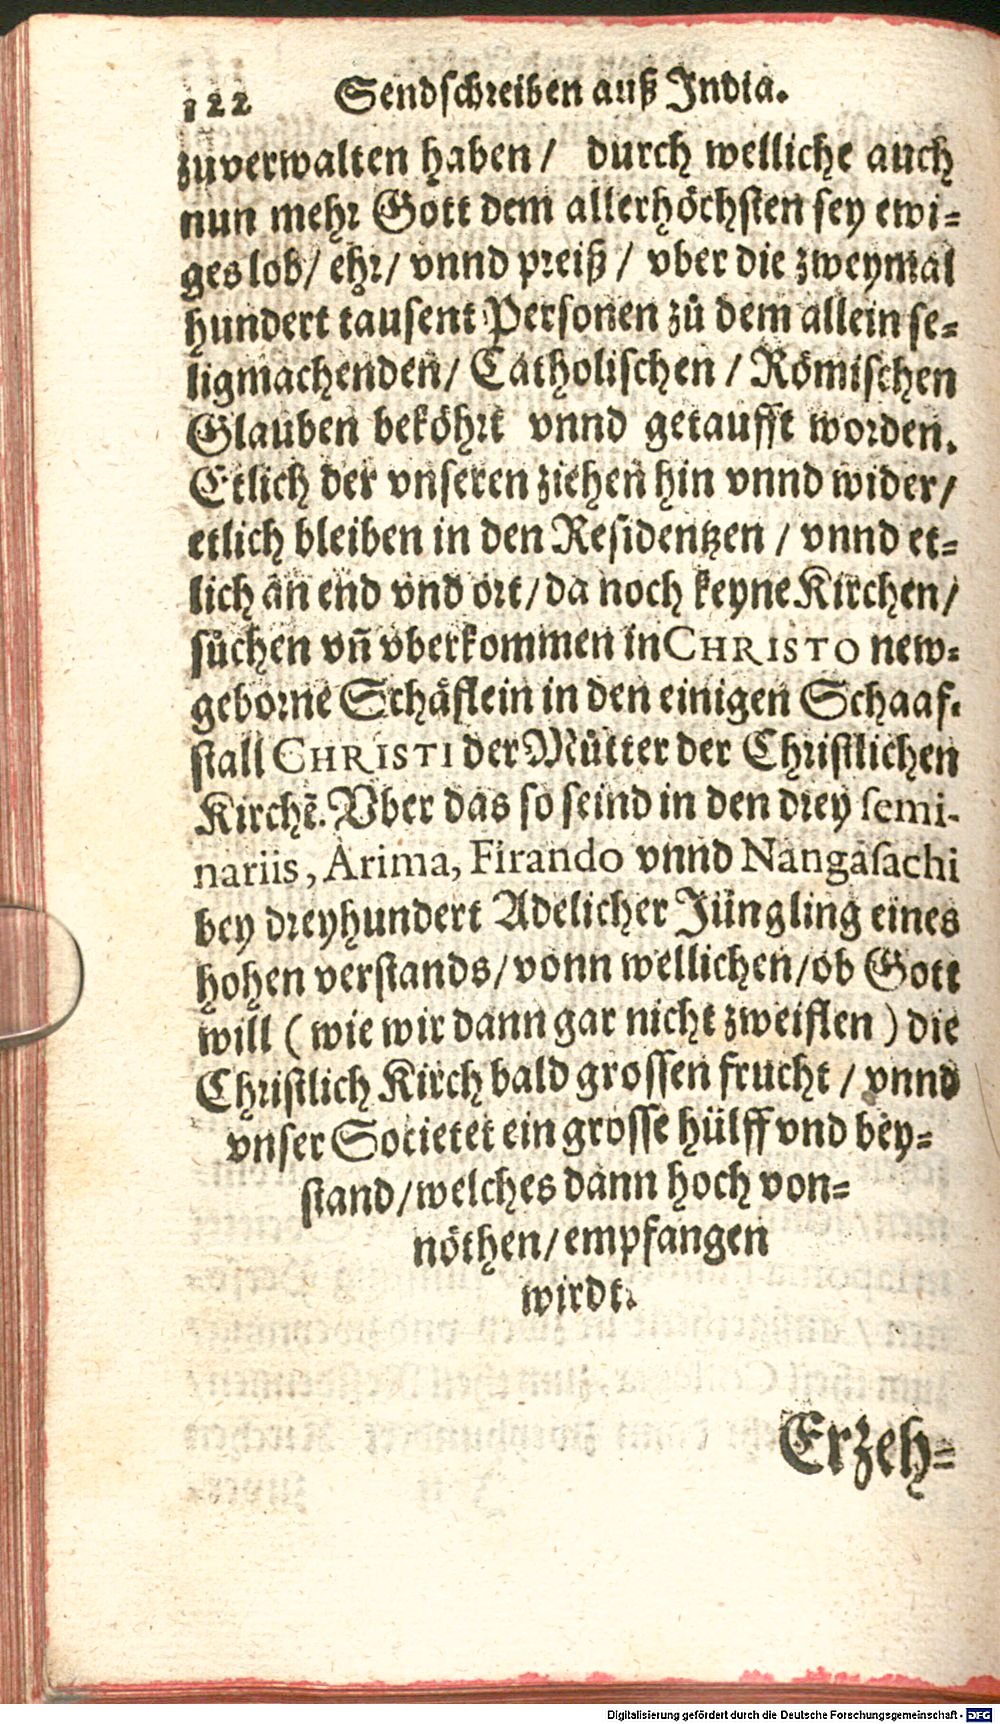 122 Sendschreiben auß India.
zuverwalten haben / durch welliche auch
nun mehr Gott dem allerhöchsten sey ewi-
ges lob / ehr / vnnd preiß / vber die zweymal
hundert tausent Personen zů dem allein se-
ligmachenden / Catholischen / Römischen
Glauben beköhrt vnnd getaufft worden.
Etlich der vnseren ziehen hin vnnd wider /
etlich bleiben in den Residentzen / vnnd et-
lich an end vnd ort / da noch keyne Kirchen /
sůchen vñ vberkommen in CHRISTO new-
geborne Schäflein in den einigen Schaaf-
stall CHRISTI der Můtter der Christlichen
Kirchẽ. Vber das so seind in den drey semi-
nariis, Arima, Firando vnnd Nangasachi
bey dreyhundert Adelicher Jüngling eines
hohen verstands / vonn wellichen / ob Gott
will ( wie wir dann gar nicht zweiflen ) die
Christlich Kirch bald grossen frucht / vnnd
vnser Societet ein grosse hülff vnd bey-
stand / welches dann hoch von-
nöthen / empfangen
wirdt.
Erzeh-
Digitalisierung gefördert durch die Deutsche Forschungsgemeinschaft - DFG